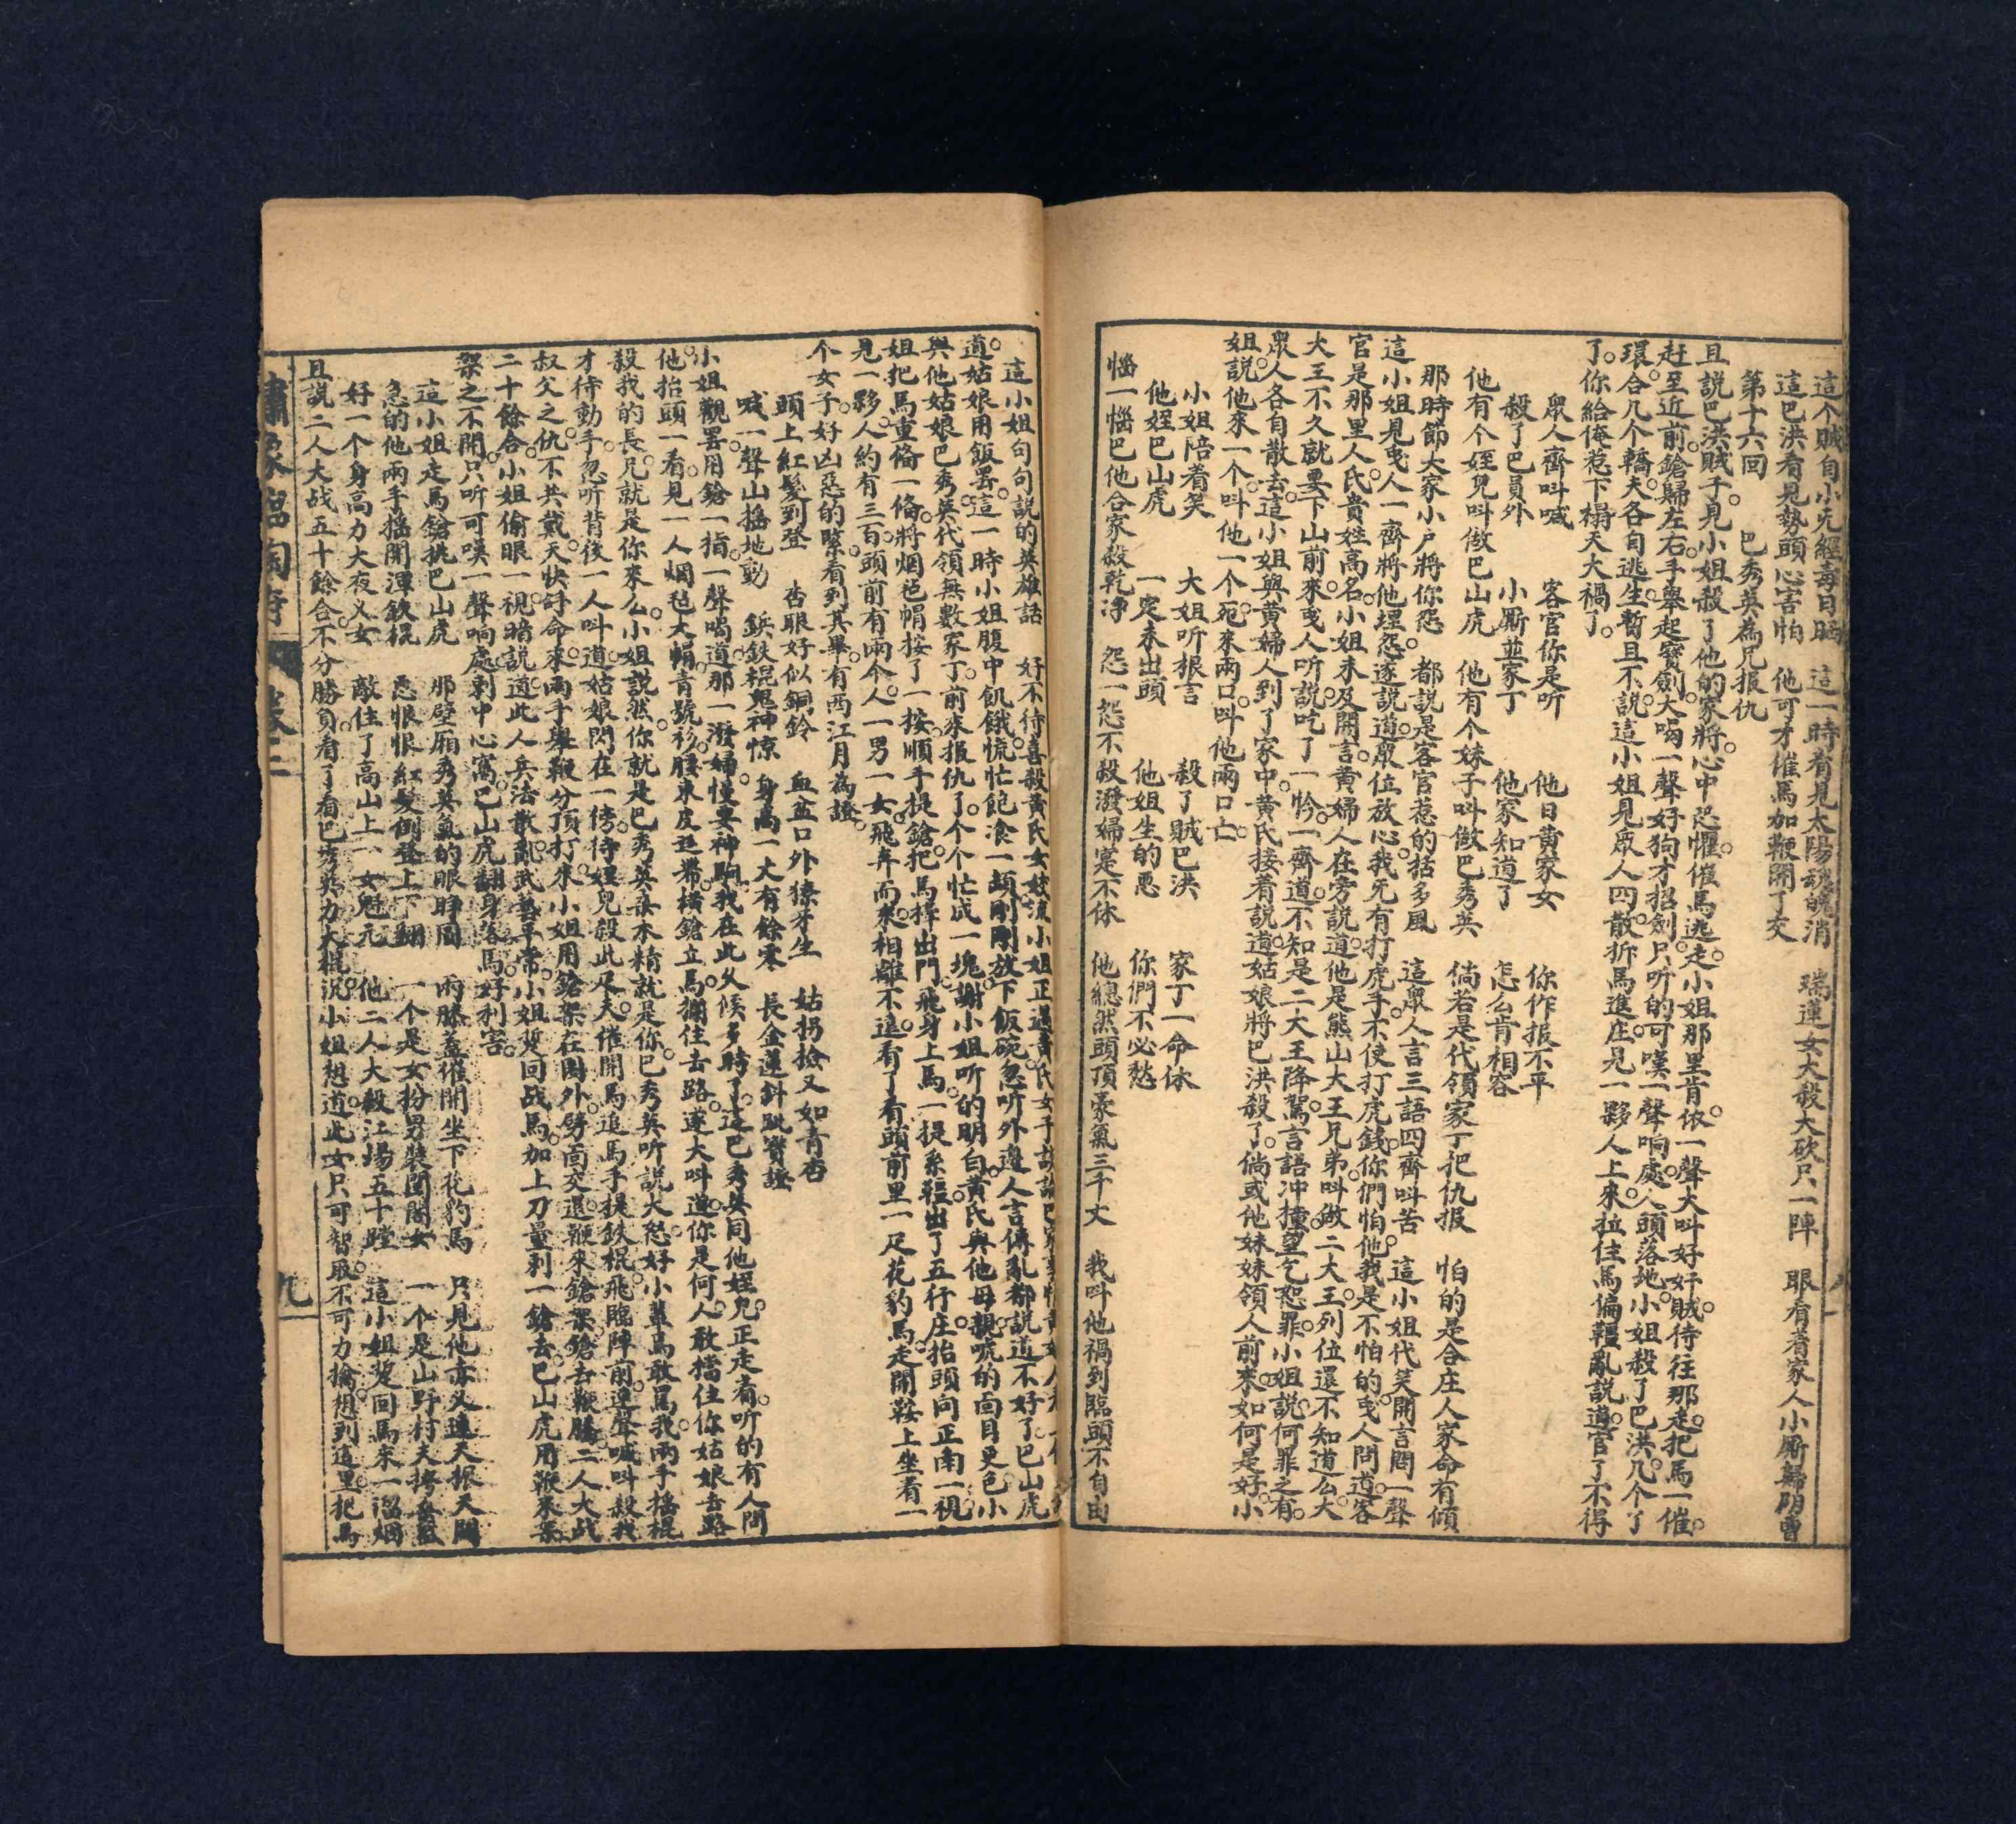 這个賊自小無經毒日晒　這一時看見太陽魂魄消　瑞蓮女大殺大砍只一陣　眼看着家人小廝歸陰曹
這巴洪看見勢頭心害怕　他可才催馬加鞭鬧了交
第十六回　巴秀英為兄报仇
且説巴洪賊子見小姐殺了他的家將心中恐懼催馬逃走小姐那里肯依一聲大叫好奸賊待往那走把馬一催
赶至近前鎗歸左右手舉起寶劍大喝一聲好狗才招劍只听的可嘆一聲响處人頭落地小姐殺了巴洪几个了
環合几个轎夫各自逃生暫且不説這小姐見眾人四散拆馬進庄見一夥人上來拉住馬偏韁亂説道官了不得
了你給俺惹下禍天大禍了
眾人齊叫喊　客官你是听　他日黄家女　你作报不平
殺了巴員外　小厮並家丁　他家知道了　怎么肯相容
他有个姪兒叫做巴山虎　他有个妹子叫做巴秀英　倘若是代領家丁把仇报　怕的是合庄人家命有傾
那時節大家小户將你怨　都説是客官惹的括多風　這眾人言三語四齊叫苦　這小姐代笑開言問一聲
這小姐見叟人一齊將他埋怨遂説道眾位放心我旡有打虎手不使打虎錢你們怕他我是不怕的叟人問道客
官是那里人氏貴姓高名小姐未及開言黄婦人在旁説道他是熊山大王兄弟叫做二大王列位還不知道么大
大王不久就要下山前來叟人听説吃了一怜一齊道不知是二大王降駕言語冲撞望乞恕罪小姐説何罪之有
眾人各自散去這小姐與黄婦人到了家中黄氏接着説道姑娘將巴洪殺了倘或他妹妹領人前來如何是好小
姐説他來一个叫他一个死來兩口叫他兩口亡
小姐陪着笑　大姐听根言　殺了賊巴洪　家丁一命休
他姪巴山虎　一定來出頭　他姐生的惡　你們不必愁
惱一惱巴他合家殺乾淨　怨一怨不殺潑婦寔不休　他總然頭頂豪氣三千丈　我叫他禍到臨頭不自由
這小姐句句説的英雄話　好不待喜殺黄氏女姣流
道姑娘用飯罢這一時小姐腹中飢餓慌忙飽飡一頓剛剛放下飯碗忽听外邊人言傳亂都説道不好了巴山虎
與他姑娘巴秀英代領無數家丁前來报仇了个个忙成一塊謝小姐听的明白黄氏與他母親唬的面目更色小
姐把馬重偹一偹將烟毡帽按了一按順手提鎗把馬择出門飛身上馬一提系韁出了五行庄抬頭向正南一視
見一夥人約有三百頭前有兩个人一男一女飛奔而來相離不遠看了看頭前里一疋花豹馬走開鞍上坐着一
个女子好凶惡的緊看到其畢有西江月為證
頭上紅髮到登　杏眼好似銅鈴　血盆口外獠牙生　姑拐捡又如青杏
喊一聲山揺地動　鋲鉄棍鬼神惊　身高一丈有餘寒　長金蓮斜跐寳證
小姐觀罢用鎗一指一聲喝道那一潑婦慢要神駒我在此久候多時了這巴秀英同他姪兒正走着听的有人問
他抬頭一看見一人烟毡大帽青號衫腰束皮廷帶橫鎗立馬攔住去路遂大叫道你是何人敢擋住你姑娘去路
殺我的長兄就是你來么小姐説然你就是巴秀英柔木精就是你巴秀英听説大怒好小輩焉敢罵我兩手搖棍
才待動手忽听背後一人叫道姑娘閃在一傍待姪兒殺此尽天催開馬追馬手提鉄棍飛臨陣前連聲喊叫殺我
叔父之仇不共戴天快討命來兩手舉鞭分頂打來小姐用鎗架在圈外劈面交還鞭來鎗架鎗去鞭騰二人大战
二十餘合小姐偷眼一視暗説道此人兵法散亂武藝平常小姐旋回战馬加上刀量剌一鎗去巴山虎用鞭來架
架之不開只听可嘆一聲响處剌中心窩巴山虎翻身落馬好利害
這小姐走馬鎗挑巴山虎　那壁厢秀英氣的眼睁圓　兩膝蓋催開坐下花豹馬　只見他赤义連天振天關
急的他兩手揺開渾鉄棍　恶恨恨紅髮倒登上下翻　一个是女扮男裝閨閣女　一个是山野村夫
好一个身高力大夜义女　敵住了高山上一女魁元　他二人大殺江場五十蹚　這小姐旋回馬來一溜烟
且説二人大战五十餘合不分勝負看了看巴秀英力大棍沉小姐想道此女只可智取不可力擒想到這里把馬
繡像　卷二　九